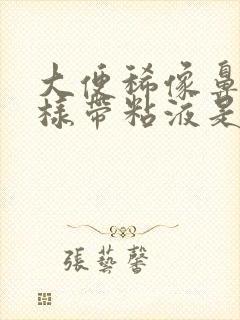 大便稀像鼻
樣帶粘液是
張藝馨